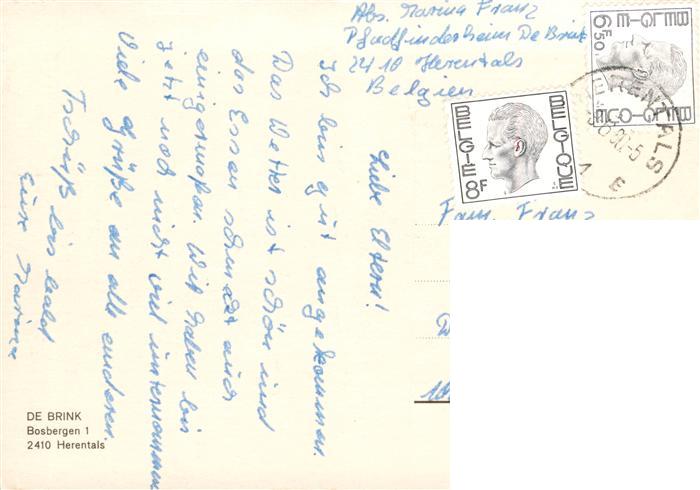 Abs. Marina Franz
Pfadfinderheim De Brink
2410 Herentals
Belgien
BELGIE-BELGIQUE
6F50
BELGIE 8F BELGIQUE
HERENTALS
Fam. Franz
Liebe Eltern!
Ich bin gut angekommen.
Das Wetter ist schön und
das Essen schmeckt auch
einigermaßen. Wir haben bis
jetzt noch nicht viel unternommen.
Viele Grüße an alle anderen.
Tschüß bis bald
Eure Marina
DE BRINK
Bosbergen 1
2410 Herentals